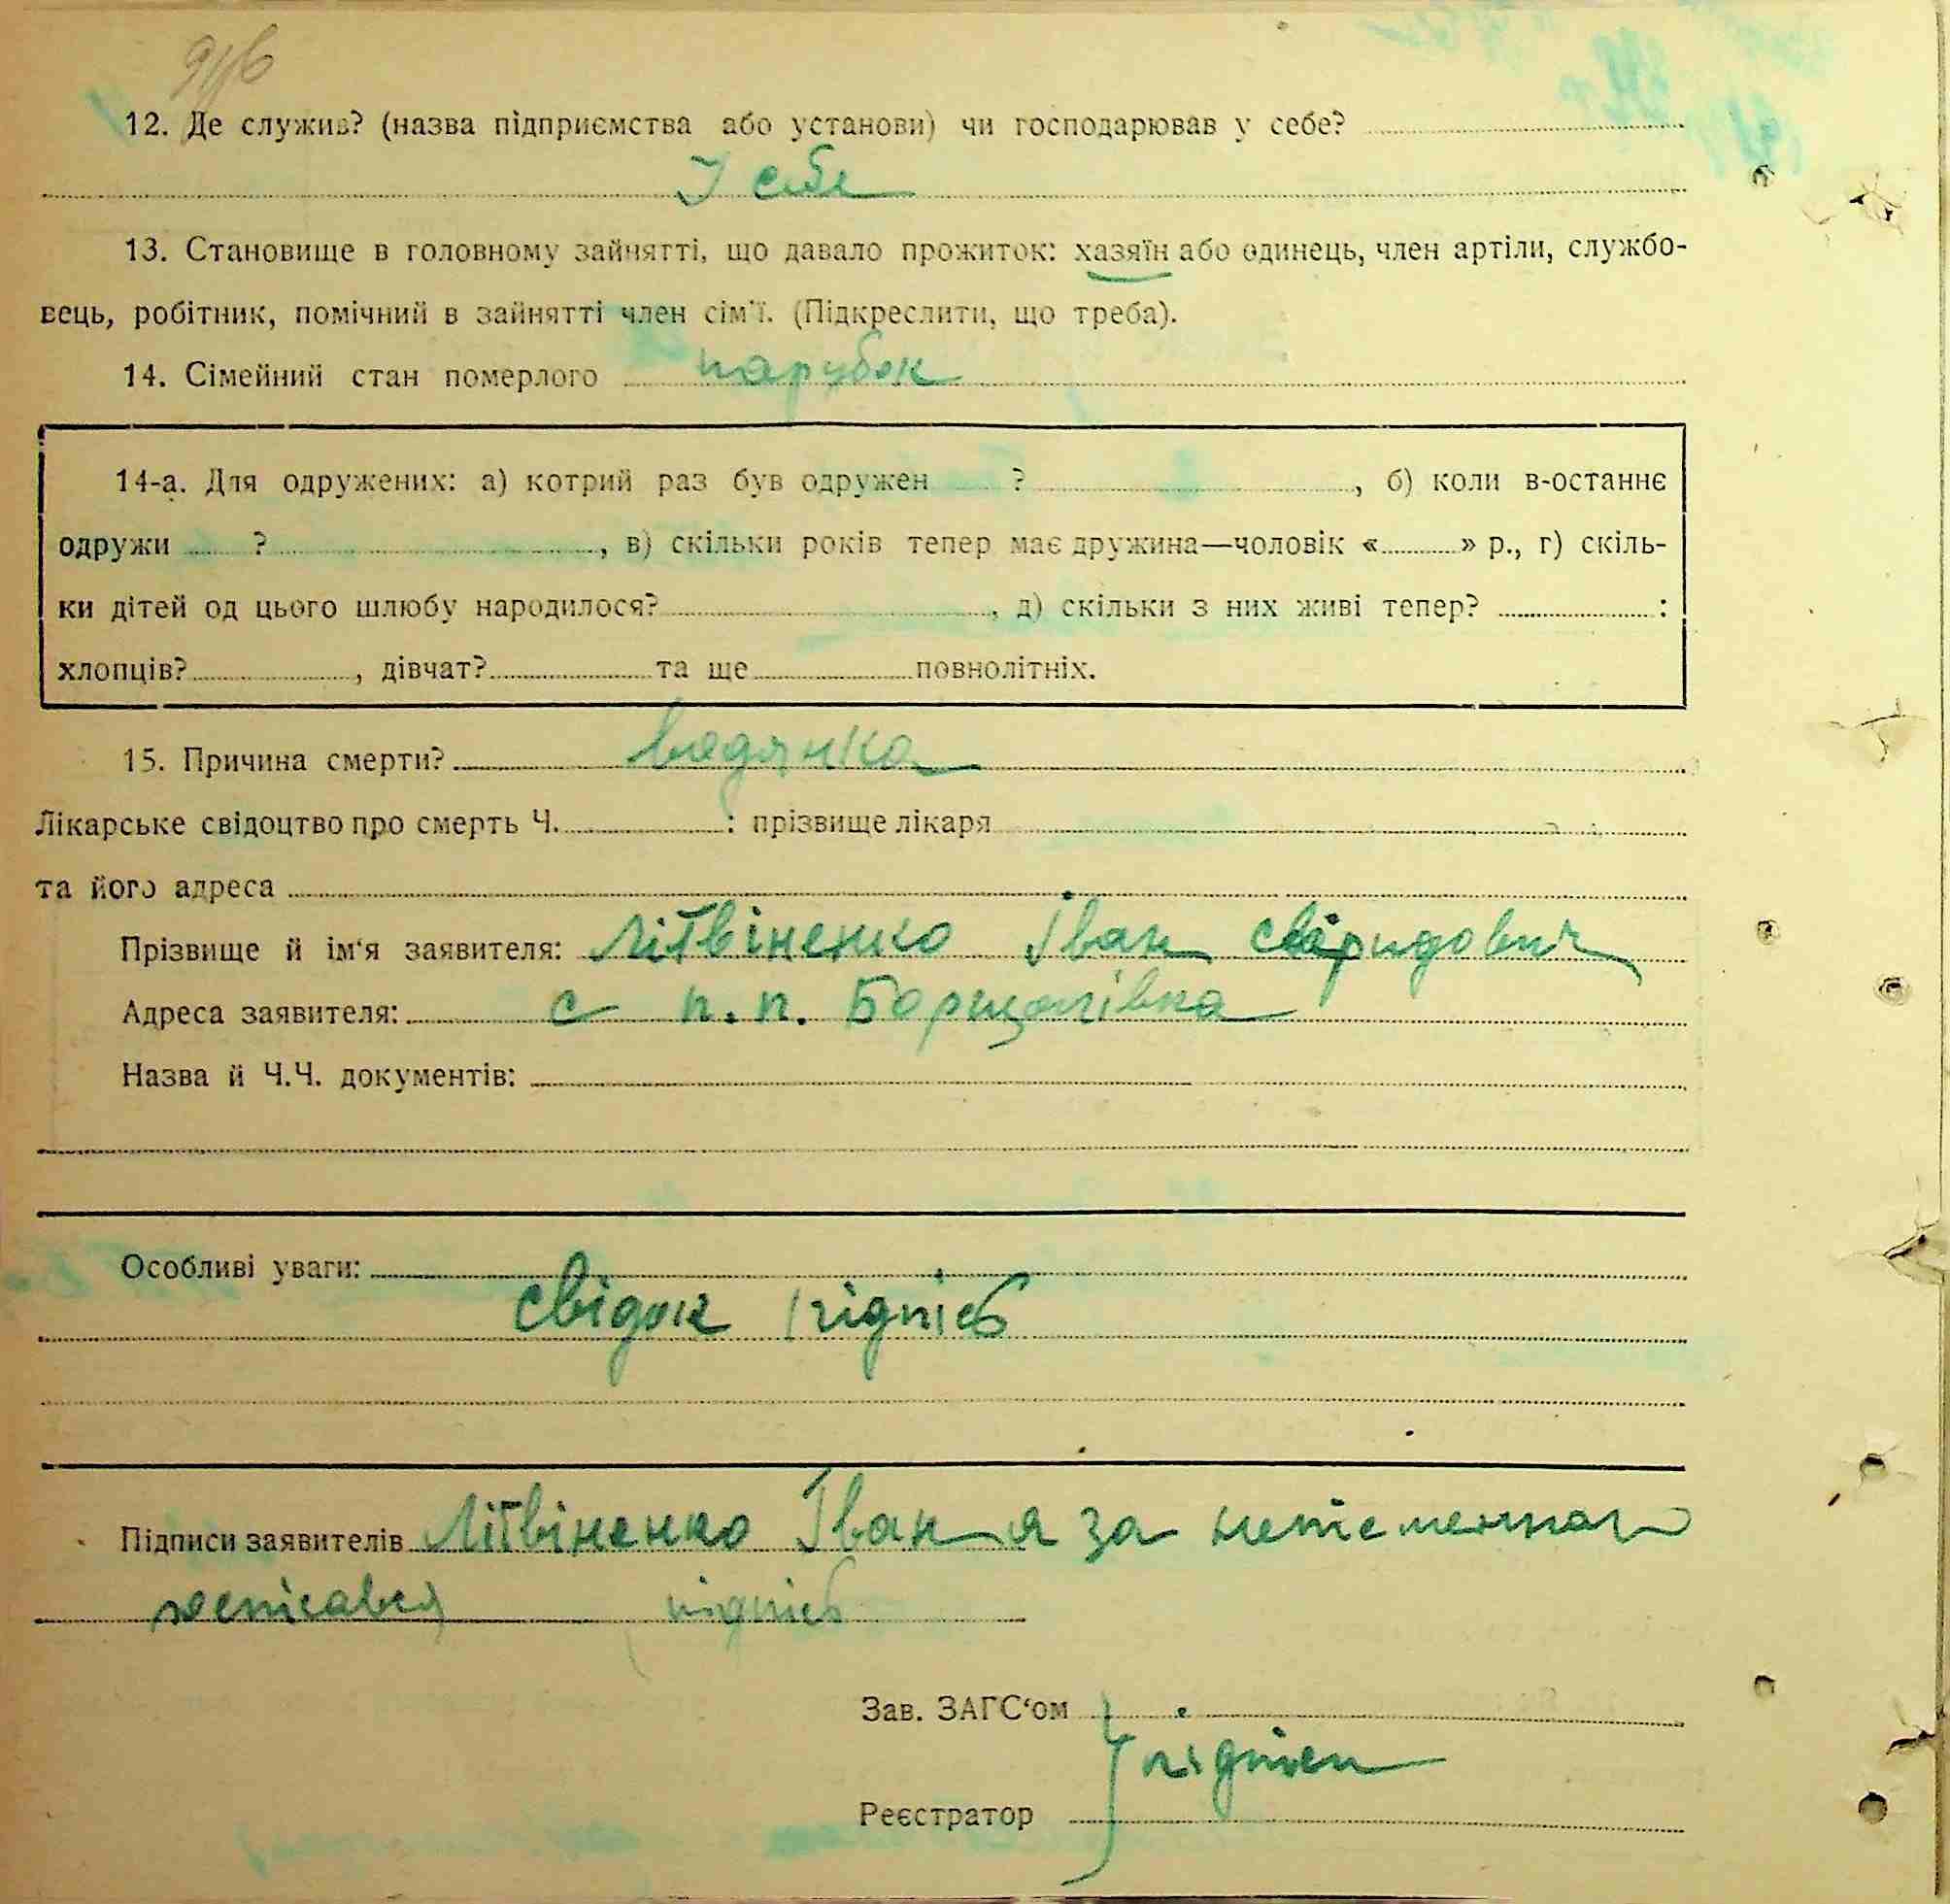 12. Де служив? (назва підприємства або установи) чи господарював у себе?
У себе
13. Становище в головному зайнятті, що давало прожиток: хазяїн або одинець, член артіли, службо-
вець, робітник, помічний в зайнятті член сім'ї. (Підкреслити, що треба).
14. Сімейний стан померлого парубок
14-а. Для одружених: а) котрий раз був одружен ?, б) коли в-останнє
одружи ?, в) скільки років тепер має дружина—чоловік « » р., г) скіль-
ки дітей од цього шлюбу народилося?, д) скільки з них живі тепер? :
хлопців?, дівчат? та ще повнолітніх.
15. Причина смерти? водянка
Лікарське свідоцтво про смерть Ч. : прізвище лікаря
та його адреса
Прізвище й ім'я заявителя: Літвіненко Іван свіридович
Адреса заявителя: с п.п. Борщагівка
Назва й Ч.Ч. документів:
Особливі уваги:
свідок підпіс
Підписи заявителів Літвіненко Іван я за
підпіс
Зав. ЗАГС'ом
підпіси
Реєстратор